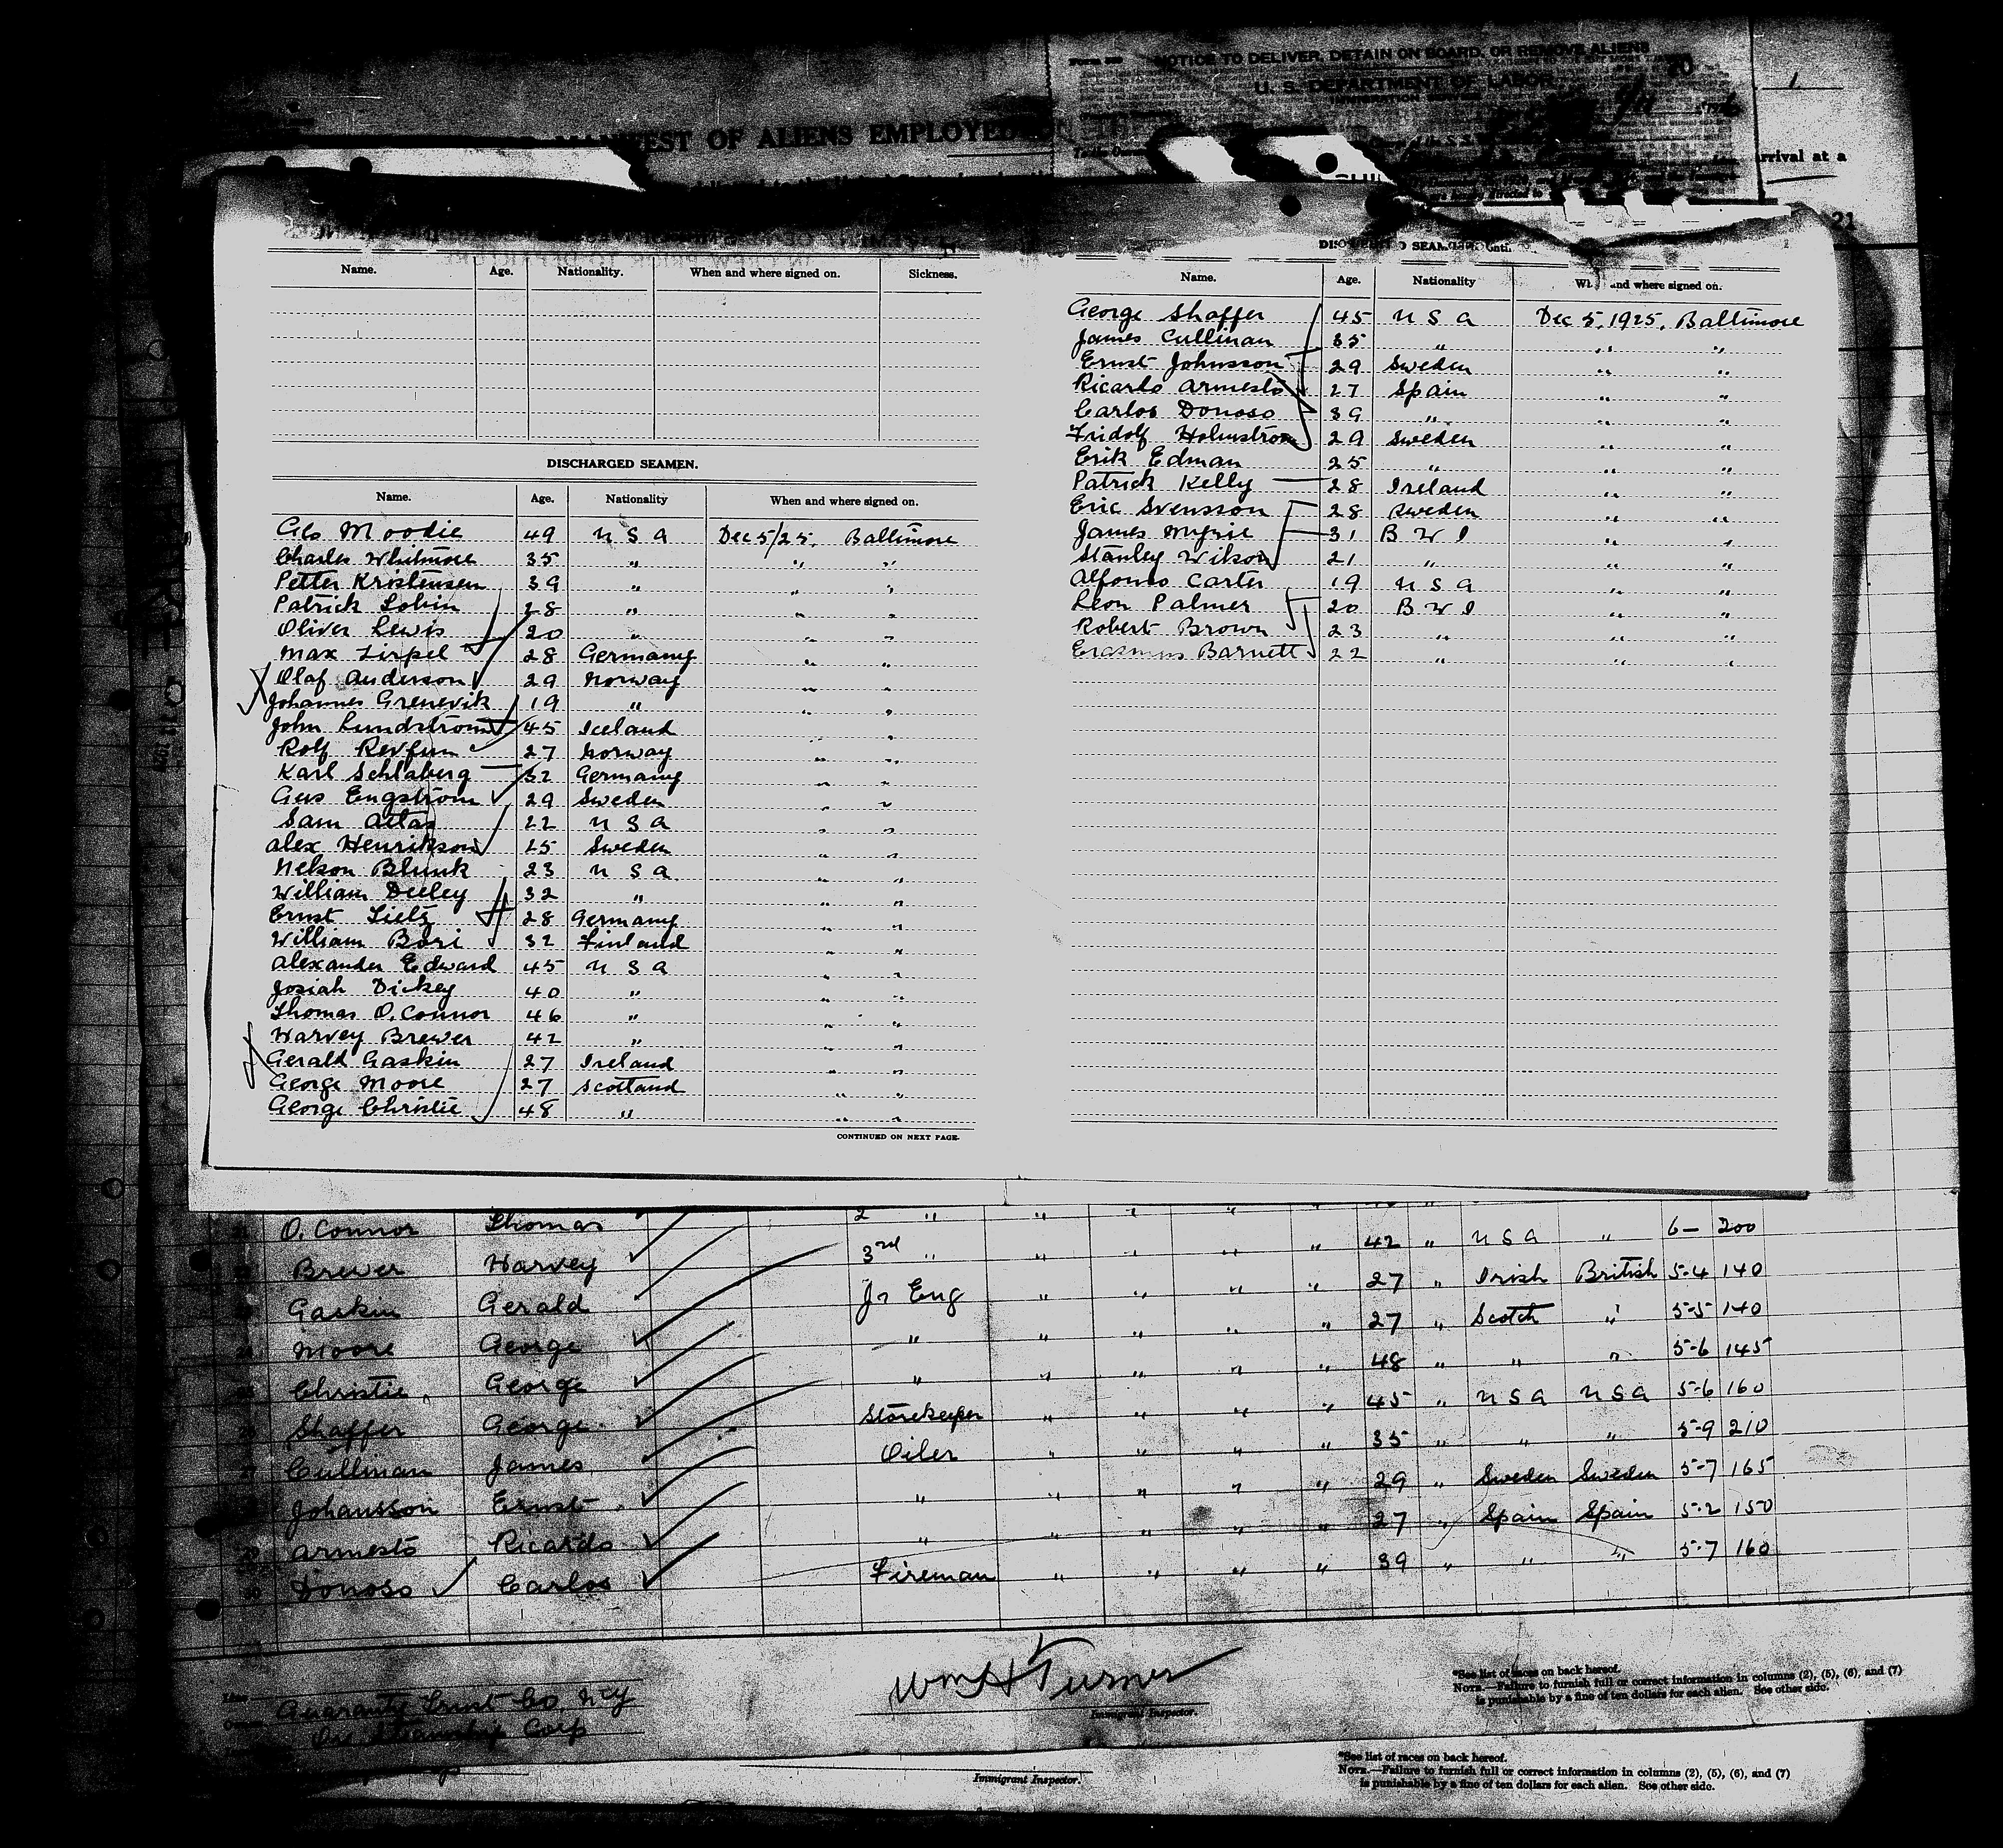 NOTICE TO DELIVER, DETAIN ON BOARD, OR REMOVE ALIENS
U. S. DEPARTMENT OF LABOR
IMMIGRATION SERVICE
MANIFEST OF ALIENS EMPLOYED ON THE
arrival at a
21
Name. Age. Nationality. When and where signed on. Sickness.
DISCHARGED SEAMEN.
Name. Age. Nationality When and where signed on.
Geo Moodie 49 U S A Dec 5/25. Baltimore
Charles Whitmore 35 " " "
Petter Kristensen 39 " " "
Patrick Tobin 28 " " "
Oliver Lewis 20 " " "
Max Zirpel 28 Germany " "
Olaf Anderson 29 Norway " "
Johannes Grenevik 19 " " "
John Lundstrom 45 Iceland " "
Rolf 27 Norway " "
Karl Schlaberg 32 Germany " "
Gus Engstrom 29 Sweden " "
Sam Attas 22 U S A " "
Alex Henrikson 25 Sweden " "
Nelson Blunk 23 U S A " "
William Deeley 32 " " "
Ernst Lietz 28 Germany " "
William Bori 32 Finland " "
Alexander Edward 45 U S A " "
Josiah Dickey 40 " " "
Thomas O. Connor 46 " " "
Harvey Brewer 42 " " "
Gerald Gaskin 27 Ireland " "
George Moore 27 Scotland " "
George Christie 48 " " "
CONTINUED ON NEXT PAGE.
Name. Age. Nationality and where signed on.
George Shaffer 45 U S A Dec 5, 1925, Baltimore
James Cullinan 35 " " "
Ernst Johnsson 29 Sweden " "
Ricardo Armesto 27 Spain " "
Carlos Donoso 39 " " "
Fridolf Holmstrom 29 Sweden " "
Erik Edman 25 " " "
Patrick Kelly 28 Ireland " "
Eric Svensson 28 Sweden " "
James Myrie 31 B W I " "
Stanley Wilson 21 " " "
Alfonso Carter 19 U S A " "
Leon Palmer 20 B W I " "
Robert Brown 23 " " "
Erasmus Barnett 22 " " "
O. Connor Thomas 2 " " " " "
Brewer Harvey 3rd " " " " " 42 " U S A " 6- 200
Gaskin Gerald Jr Eng " " " " 27 " Irish British 5-4 140
Moore George " " " " " 27 " Scotch " 5-5 140
Christie George " " " " " 48 " " " 5-6 145
Shaffer George Storekeeper " " " " 45 " U S A U S A 5-6 160
Cullinan James Oiler " " " " 35 " " " 5-9 210
Johansson Ernst " " " " " 29 " Sweden Sweden 5-7 165
Armesto Ricardo " " " " " 27 " Spain Spain 5-2 150
Donoso Carlos Fireman " " " " 39 " " " 5-7 160
Wm H Turner
Immigrant Inspector.
Guaranty Trust Co, N.Y
Ore Steamship Corp
*See list of races on back hereof.
NOTE.—Failure to furnish full or correct information in columns (2), (5), (6), and (7)
is punishable by a fine of ten dollars for each alien. See other side.
Immigrant Inspector.
*See list of races on back hereof.
NOTE.—Failure to furnish full or correct information in columns (2), (5), (6), and (7)
is punishable by a fine of ten dollars for each alien. See other side.